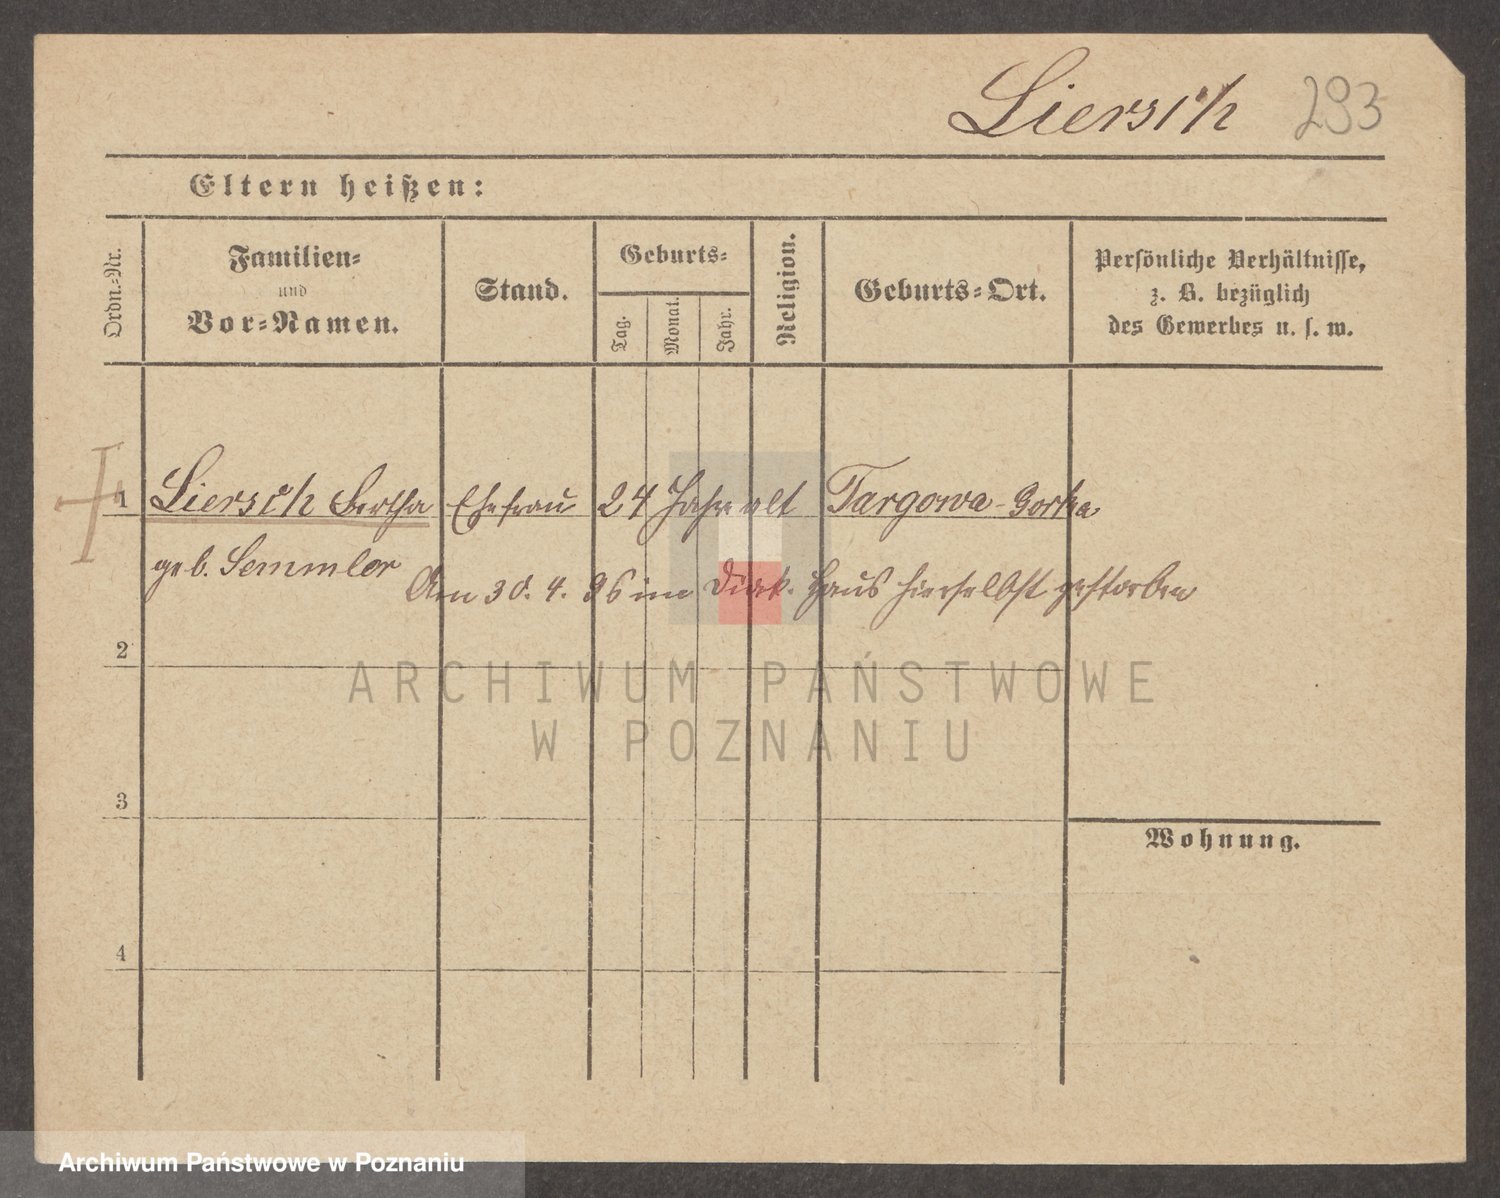 Liersch 293
Eltern heißen:
Ordn.-Nr.
Familien-
und
Vor-Namen.
Stand.
Geburts-
Tag.
Monat.
Jahr.
Religion.
Geburts-Ort.
Persönliche Verhältnisse,
z. B. bezüglich
des Gewerbes u. s. w.
1 Liersch Bertha Ehefrau 24 Jahre alt Targowa-Gorka
geb. Semmler
Am 30. 4. 96 im Diak. Haus hierselbst gestorben
2
ARCHIWUM PAŃSTWOWE
W POZNANIU
3
Wohnung.
4
Archiwum Państwowe w Poznaniu